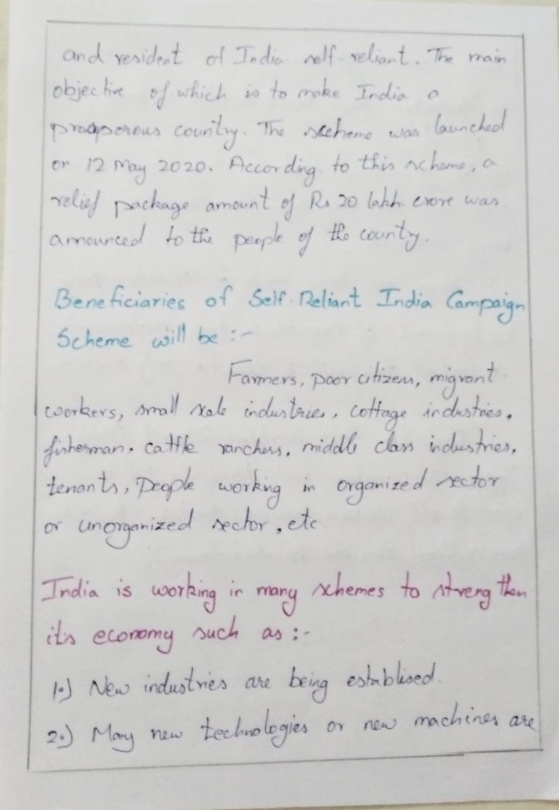 and resident of India self-reliant. The main
objective of which is to make India a
prosperous country. The scheme was launched
on 12 May 2020. According to this scheme, a
relief package amount of Rs 20 lakh crore was
announced to the people of the country.
Beneficiaries of Self-Reliant India Campaign
Scheme will be :-
Farmers, poor citizens, migrant
workers, small scale industries, cottage industries,
fisherman, cattle ranchers, middle class industries,
tenants, people working in organized sector
or unorganized sector, etc
India is working in many schemes to strengthen
it's economy such as :-
1.) New industries are being establised.
2.) May new technologies or new machines are